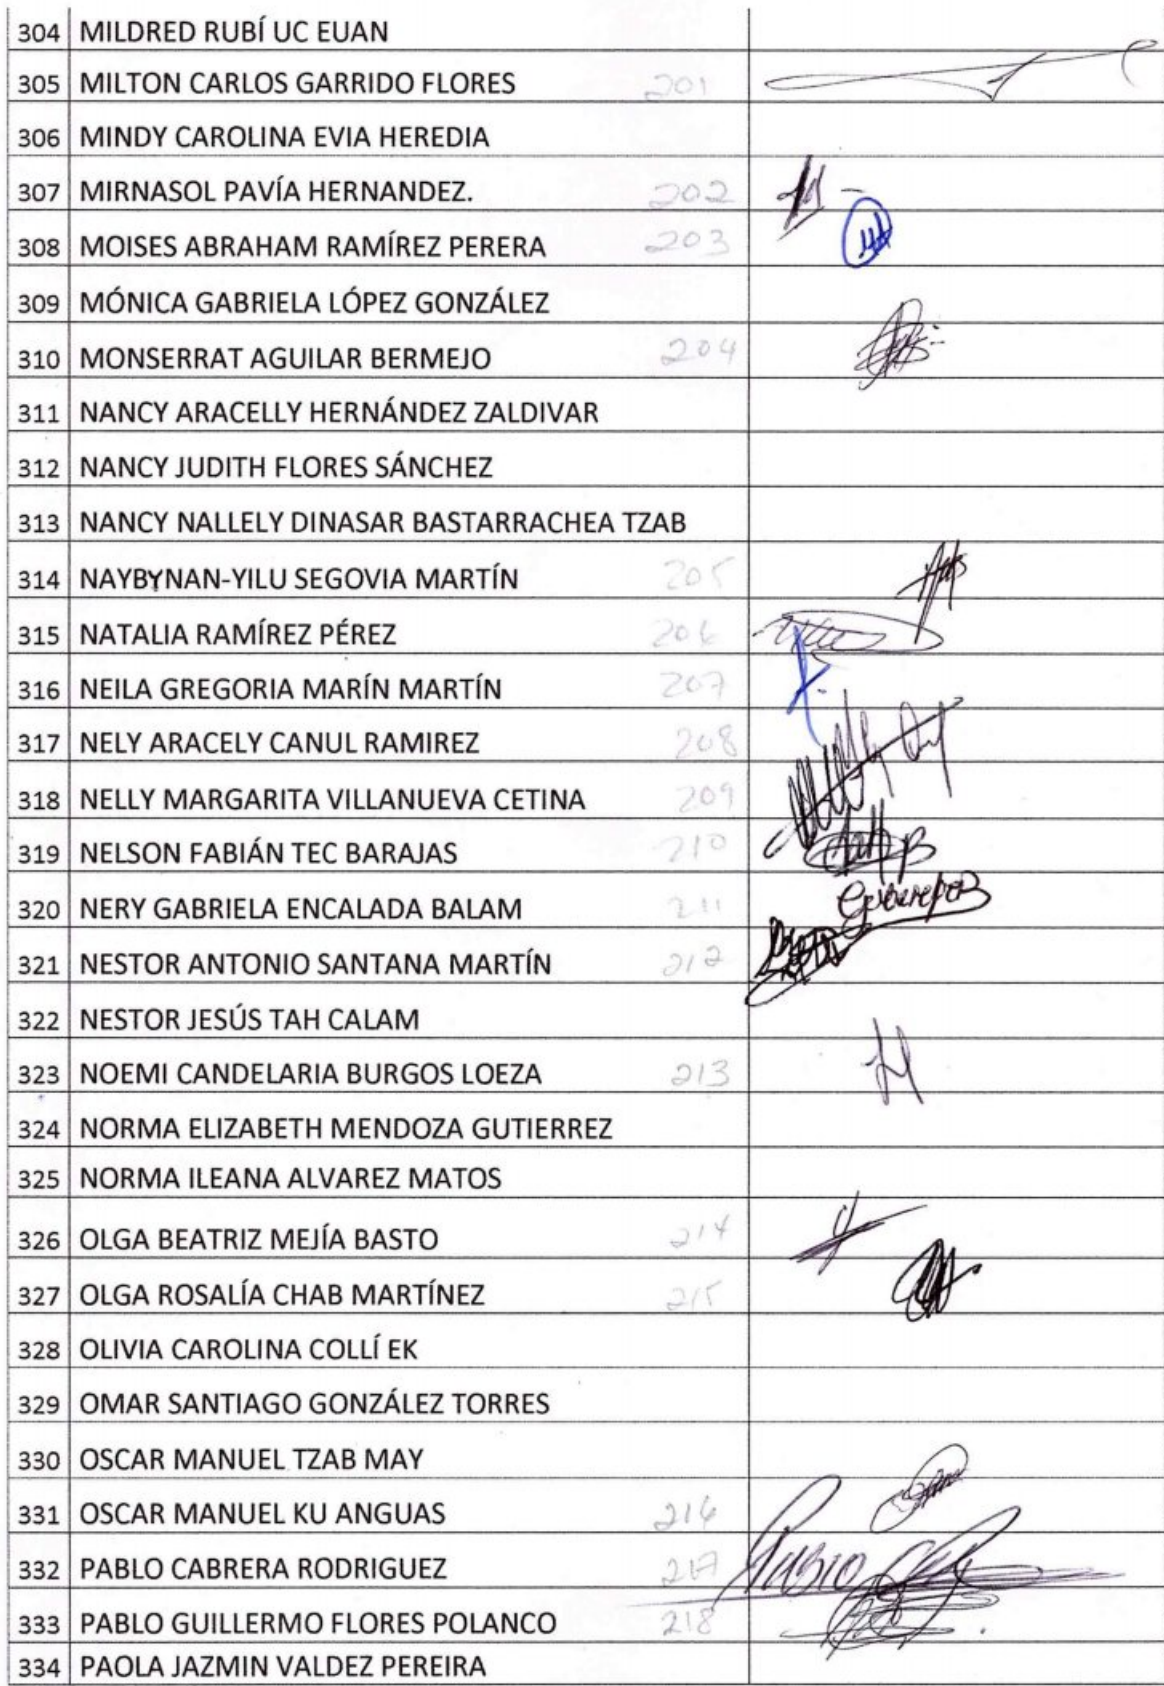 304 MILDRED RUBÍ UC EUAN
305 MILTON CARLOS GARRIDO FLORES 201
306 MINDY CAROLINA EVIA HEREDIA
307 MIRNASOL PAVÍA HERNANDEZ. 202
308 MOISES ABRAHAM RAMÍREZ PERERA 203
309 MÓNICA GABRIELA LÓPEZ GONZÁLEZ
310 MONSERRAT AGUILAR BERMEJO 204
311 NANCY ARACELLY HERNÁNDEZ ZALDIVAR
312 NANCY JUDITH FLORES SÁNCHEZ
313 NANCY NALLELY DINASAR BASTARRACHEA TZAB
314 NAYBYNAN-YILU SEGOVIA MARTÍN 205
315 NATALIA RAMÍREZ PÉREZ 206
316 NEILA GREGORIA MARÍN MARTÍN 207
317 NELY ARACELY CANUL RAMIREZ 208
318 NELLY MARGARITA VILLANUEVA CETINA 209
319 NELSON FABIÁN TEC BARAJAS 210
320 NERY GABRIELA ENCALADA BALAM 211
321 NESTOR ANTONIO SANTANA MARTÍN 212
322 NESTOR JESÚS TAH CALAM
323 NOEMI CANDELARIA BURGOS LOEZA 213
324 NORMA ELIZABETH MENDOZA GUTIERREZ
325 NORMA ILEANA ALVAREZ MATOS
326 OLGA BEATRIZ MEJÍA BASTO 214
327 OLGA ROSALÍA CHAB MARTÍNEZ 215
328 OLIVIA CAROLINA COLLÍ EK
329 OMAR SANTIAGO GONZÁLEZ TORRES
330 OSCAR MANUEL TZAB MAY
331 OSCAR MANUEL KU ANGUAS 216
332 PABLO CABRERA RODRIGUEZ 217
333 PABLO GUILLERMO FLORES POLANCO 218
334 PAOLA JAZMIN VALDEZ PEREIRA